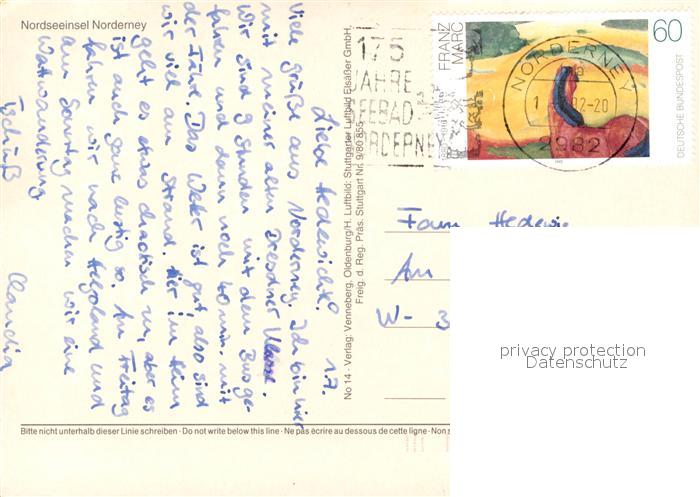 Nordseeinsel Norderney
1.7.
Liebe Hedewichte!
Viele Grüße aus Norderney. Ich bin hier
mit meiner alten Dresdner Klasse.
Wir sind 9 Stunden mit dem Bus ge-
fahren und dann noch 40 min. mit
der Fähre. Das Wetter ist gut, also sind
wir viel am Strand. Hier im Heim
geht es etwas chaotisch zu, aber es
ist auch ganz lustig so. Am Freitag
fahren wir nach Helgoland und
am Sonntag machen wir eine
Wattwanderung
Tschüß
Claudia
No 14 · Verlag: Venneberg, Oldenburg/H. Luftbild: Stuttgarter Luftbild Elsäßer GmbH
Freig. d. Reg. Präs. Stuttgart Nr. 9/80 855
175
JAHRE
SEEBAD
NORDERNEY
FRANZ
MARC
60
DEUTSCHE BUNDESPOST
NORDERNEY
92-20
2982
Frau Hedewig
Am
W- 3
privacy protection
Datenschutz
Bitte nicht unterhalb dieser Linie schreiben · Do not write below this line · Ne pas écrire au dessous de cette ligne · Non